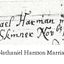 ael Harman m
Skinner Nov
Nathaniel Harmon Marria